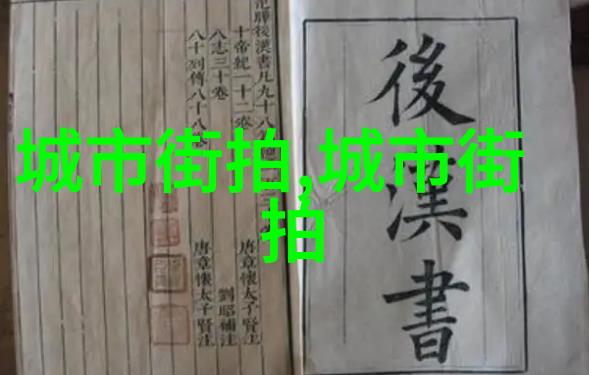 城市街拍,城市街
拍
後漢書
後漢書凡九十八
十帝紀一十二卷 唐章懷太子賢注
八志三十卷 劉昭補注
八十列傳八十八卷 唐章懷太子賢注